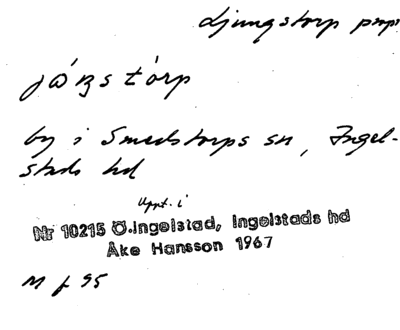 Ljungstorp
by i Smedstorps sn, Ingel-
stads hd
Uppt. i
Nr 10215 Ö.Ingelstad, Ingelstads hd
Åke Hansson 1967
M f 95